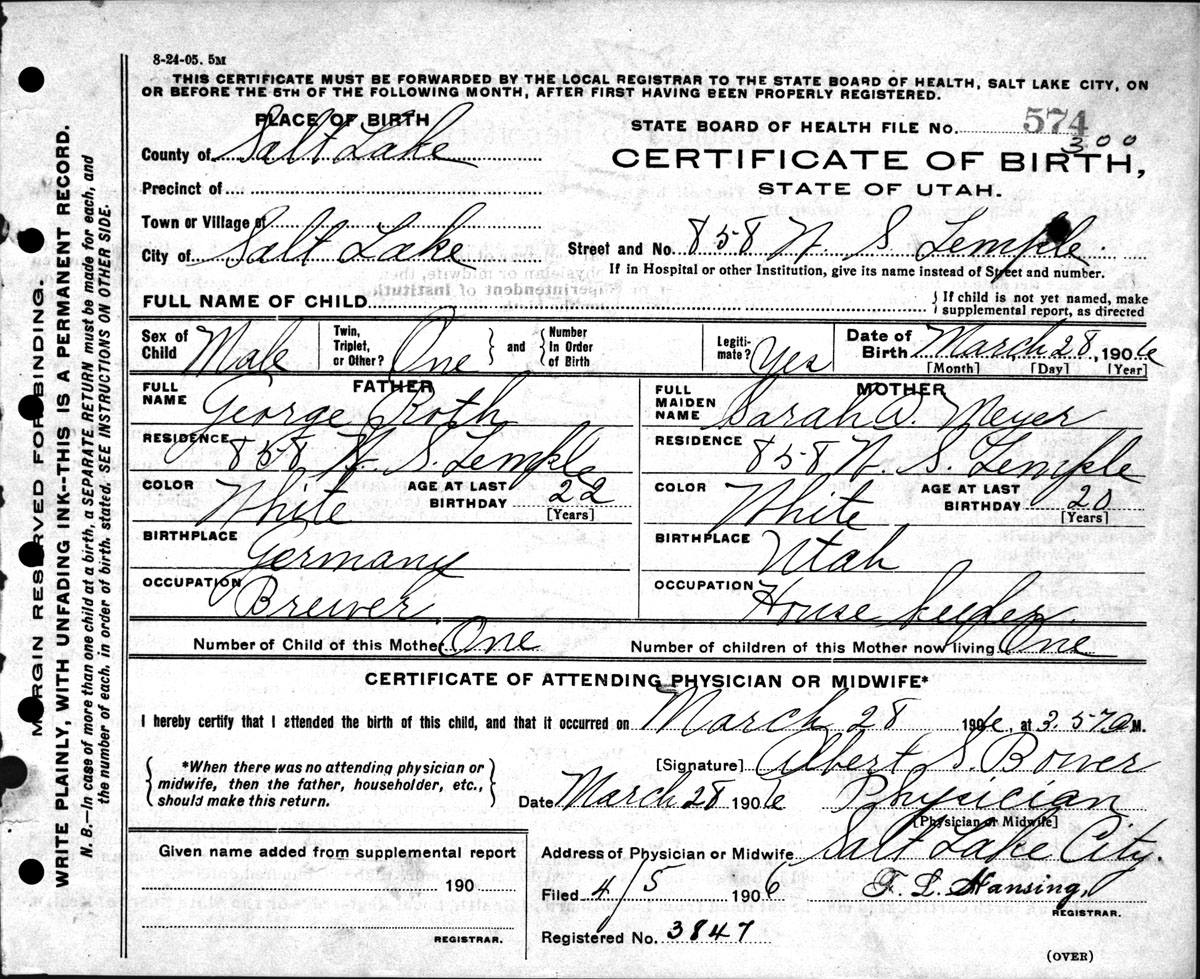 8-24-05. 5M
THIS CERTIFICATE MUST BE FORWARDED BY THE LOCAL REGISTRAR TO THE STATE BOARD OF HEALTH, SALT LAKE CITY, ON
OR BEFORE THE 5TH OF THE FOLLOWING MONTH, AFTER FIRST HAVING BEEN PROPERLY REGISTERED.
PLACE OF BIRTH
County of Salt Lake
Precinct of
Town or Village of
City of Salt Lake
STATE BOARD OF HEALTH FILE No. 574
300
CERTIFICATE OF BIRTH,
STATE OF UTAH.
Street and No. 858 W. S. Temple.
If in Hospital or other Institution, give its name instead of Street and number.
FULL NAME OF CHILD
If child is not yet named, make
supplemental report, as directed
Sex of Child Male
Twin, Triplet, or Other? One
and
Number In Order of Birth
Legiti-mate? Yes
Date of Birth March 28, 1906
[Month] [Day] [Year]
FATHER
FULL NAME George Roth
RESIDENCE 858 W. S. Temple
COLOR White
AGE AT LAST BIRTHDAY 22
[Years]
BIRTHPLACE Germany
OCCUPATION Brewer
MOTHER
FULL MAIDEN NAME Sarah A. Meyer
RESIDENCE 858 W. S. Temple
COLOR White
AGE AT LAST BIRTHDAY 20
[Years]
BIRTHPLACE Utah
OCCUPATION House keeper.
Number of Child of this Mother One
Number of children of this Mother now living One
CERTIFICATE OF ATTENDING PHYSICIAN OR MIDWIFE*
I hereby certify that I attended the birth of this child, and that it occurred on March 28 1906, at 3.57 a M.
*When there was no attending physician or
midwife, then the father, householder, etc.,
should make this return.
[Signature] Albert S. Bower
Date March 28 1906 Physician
[Physician or Midwife]
Given name added from supplemental report
190
REGISTRAR.
Address of Physician or Midwife Salt Lake City.
Filed 4/5 1906 F. L. Hansing,
REGISTRAR.
Registered No. 3847
(OVER)
MARGIN RESERVED FOR BINDING.
WRITE PLAINLY, WITH UNFADING INK--THIS IS A PERMANENT RECORD.
N. B.—In case of more than one child at a birth, a SEPARATE RETURN must be made for each, and
the number of each, in order of birth, stated. SEE INSTRUCTIONS ON OTHER SIDE.